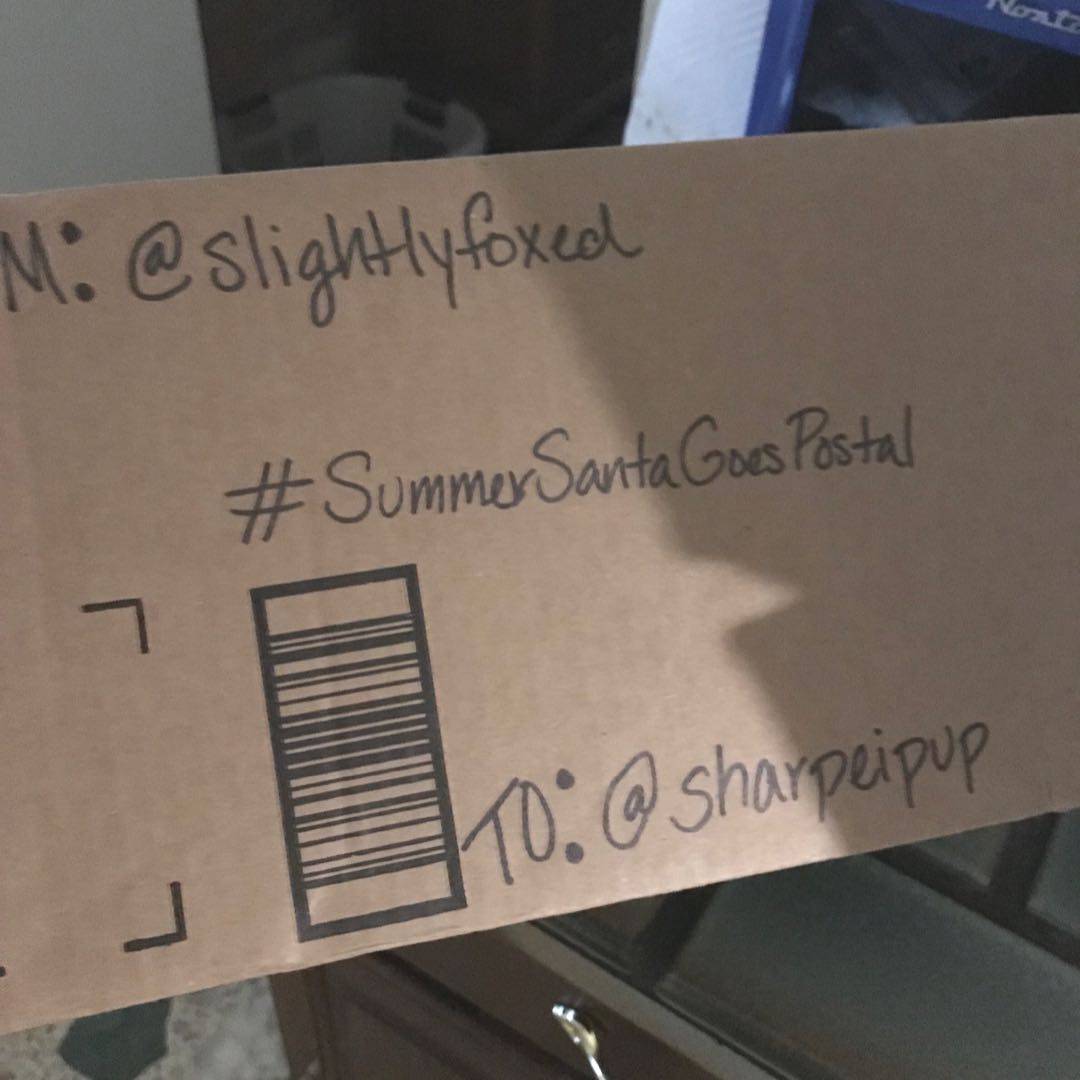 M: @slightlyfoxed
#SummerSantaGoesPostal
TO: @sharpeipup